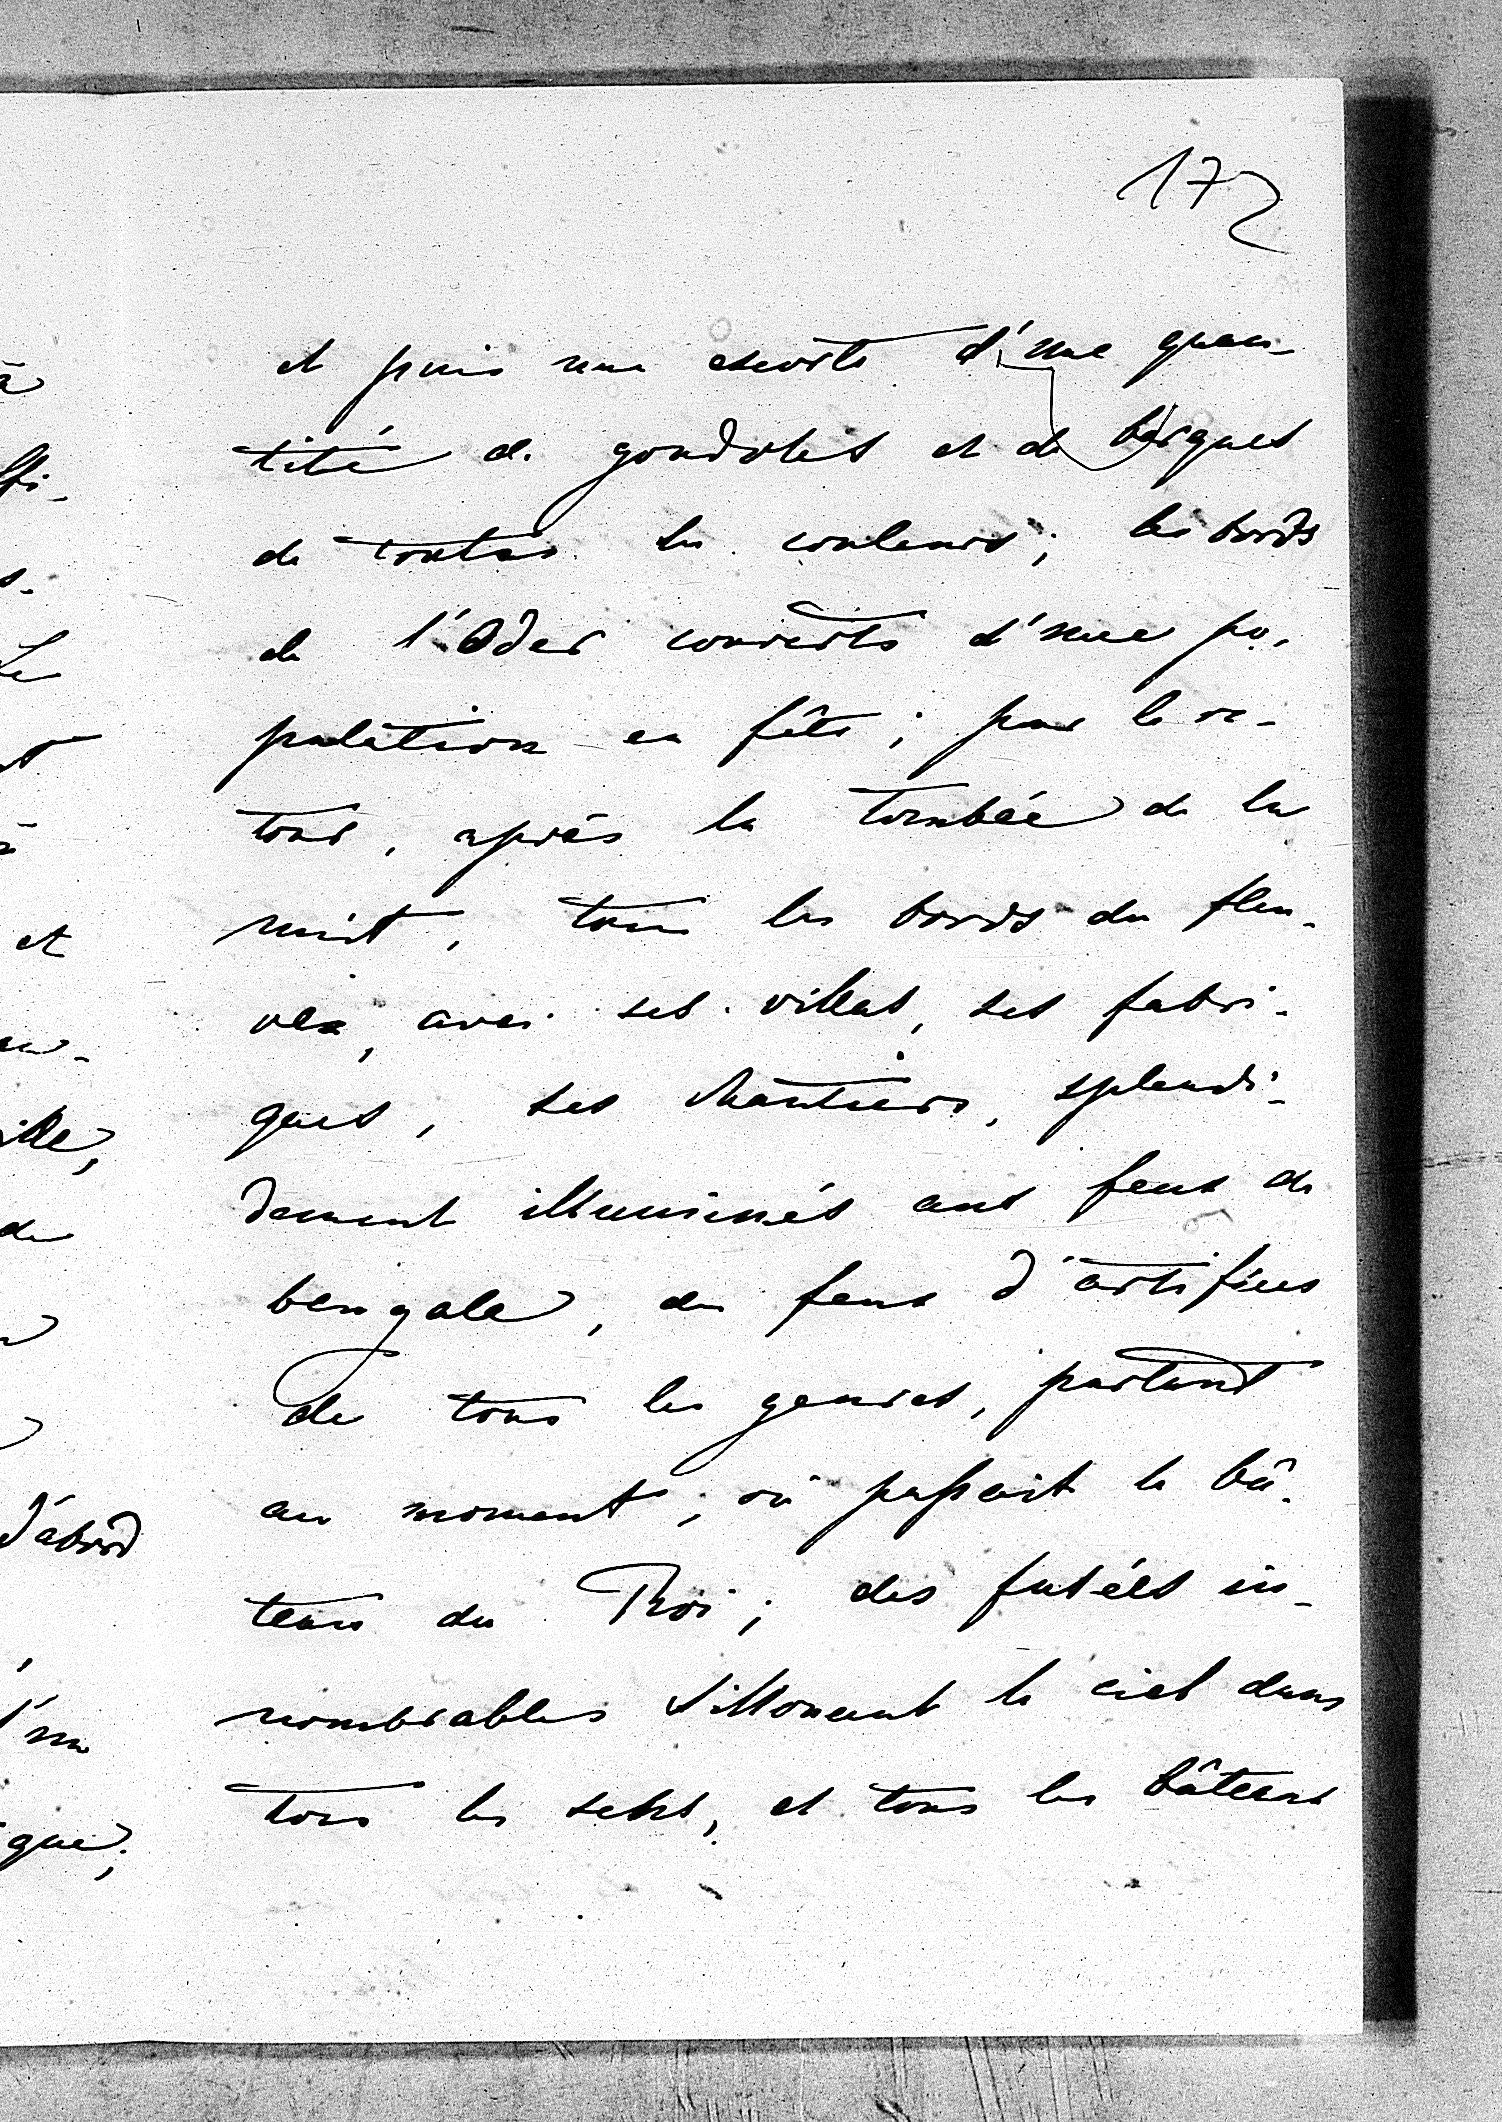 172
et puis une escorte d'une quan-
tité de gondoles et de barques
de toutes les couleurs; les bords
de l'Oder couverts d'une po-
pulation en fête; pour le re-
tour, après la tombée de la
nuit, tous les bords du fleu-
ve, avec ses villas, ses fabri-
ques, ses chantiers, splendi-
dement illuminés aux feux de
bengale, des feux d'artifices
de tous les genres, partant
au moment, où passait le bâ-
teau du Roi; des fusées in-
nombrables sillonant le ciel dans
tous les sens, et tous les bâteaux
à
ffi-
s.
Le
et
ille,
de
d'abord
d'un
que;